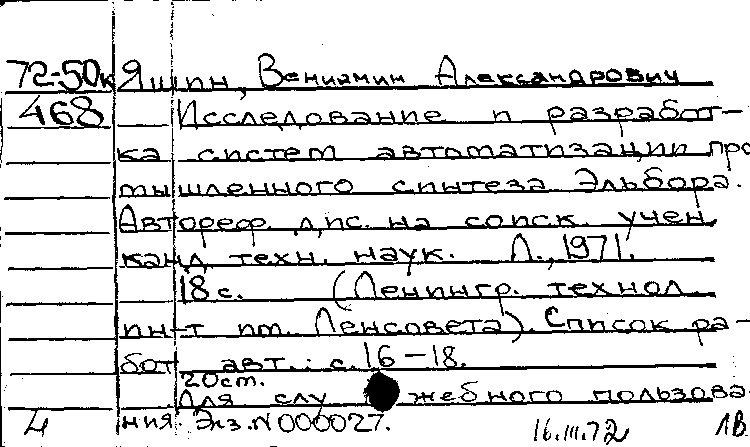 72-50к Яшин, Вениамин Александрович
468 Исследование и разработ-
ка систем автоматизации про
мышленного синтеза Эльбора.
Автореф. дис. на соиск. учен.
канд. техн. наук. Л., 1971.
18 с. (Ленингр. технол.
ин-т им. Ленсовета). Список ра-
бот авт.: с. 16-18.
20 ст.
Для служебного пользова
4 ния. Экз. N 000027. 16.III.72 ЛВ